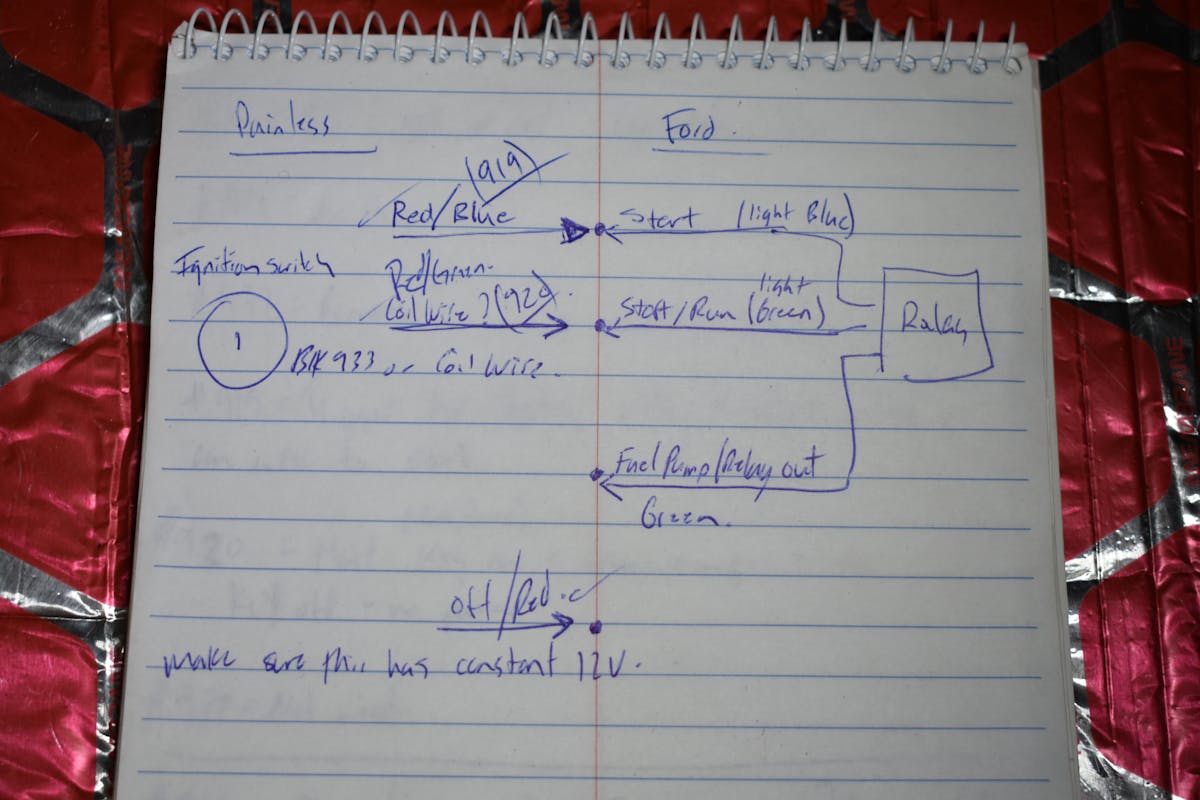 Painless
Ford.
(919)
Red/Blue
Start (light Blue)
Ignition switch
Red/Green.
Coil Wire? (920)
light
Start/Run (Green)
Relay
1
Blk 933 or Coil Wire.
Fuel Pump/Relay out
Green.
Off/Red.
make sure this has constant 12V.